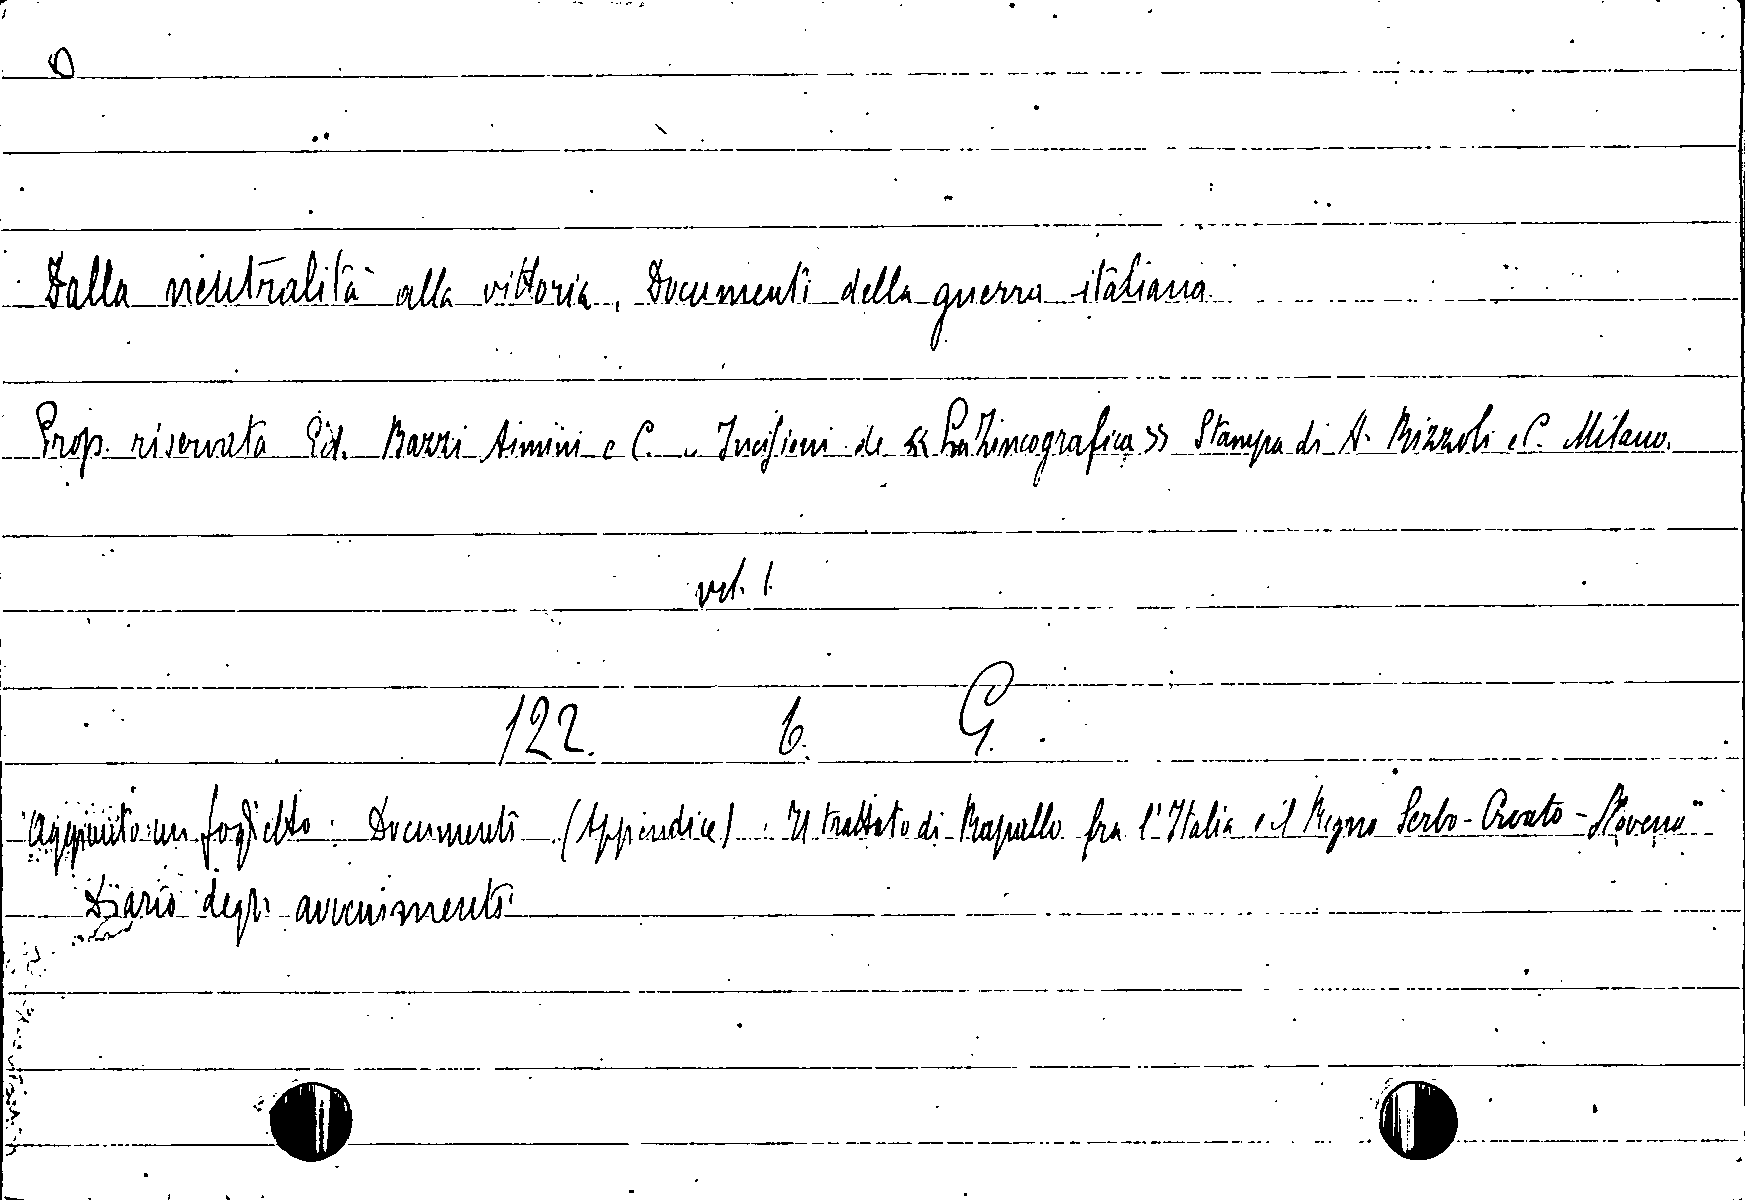 D
Dalla neutralità alla vittoria, Documenti della guerra italiana.
Prop. riservata Ed. Barri e C. - Incisioni de « La Zincografica » Stampa di A. Rizzoli e C. Milano.
vol. 1.
122. 6. G.
Aggiunto un foglietto: Documenti (Appendice). "Il trattato di Rapallo fra l'Italia e il Regno Serbo-Croato-Sloveno"
Diario degli avvenimenti